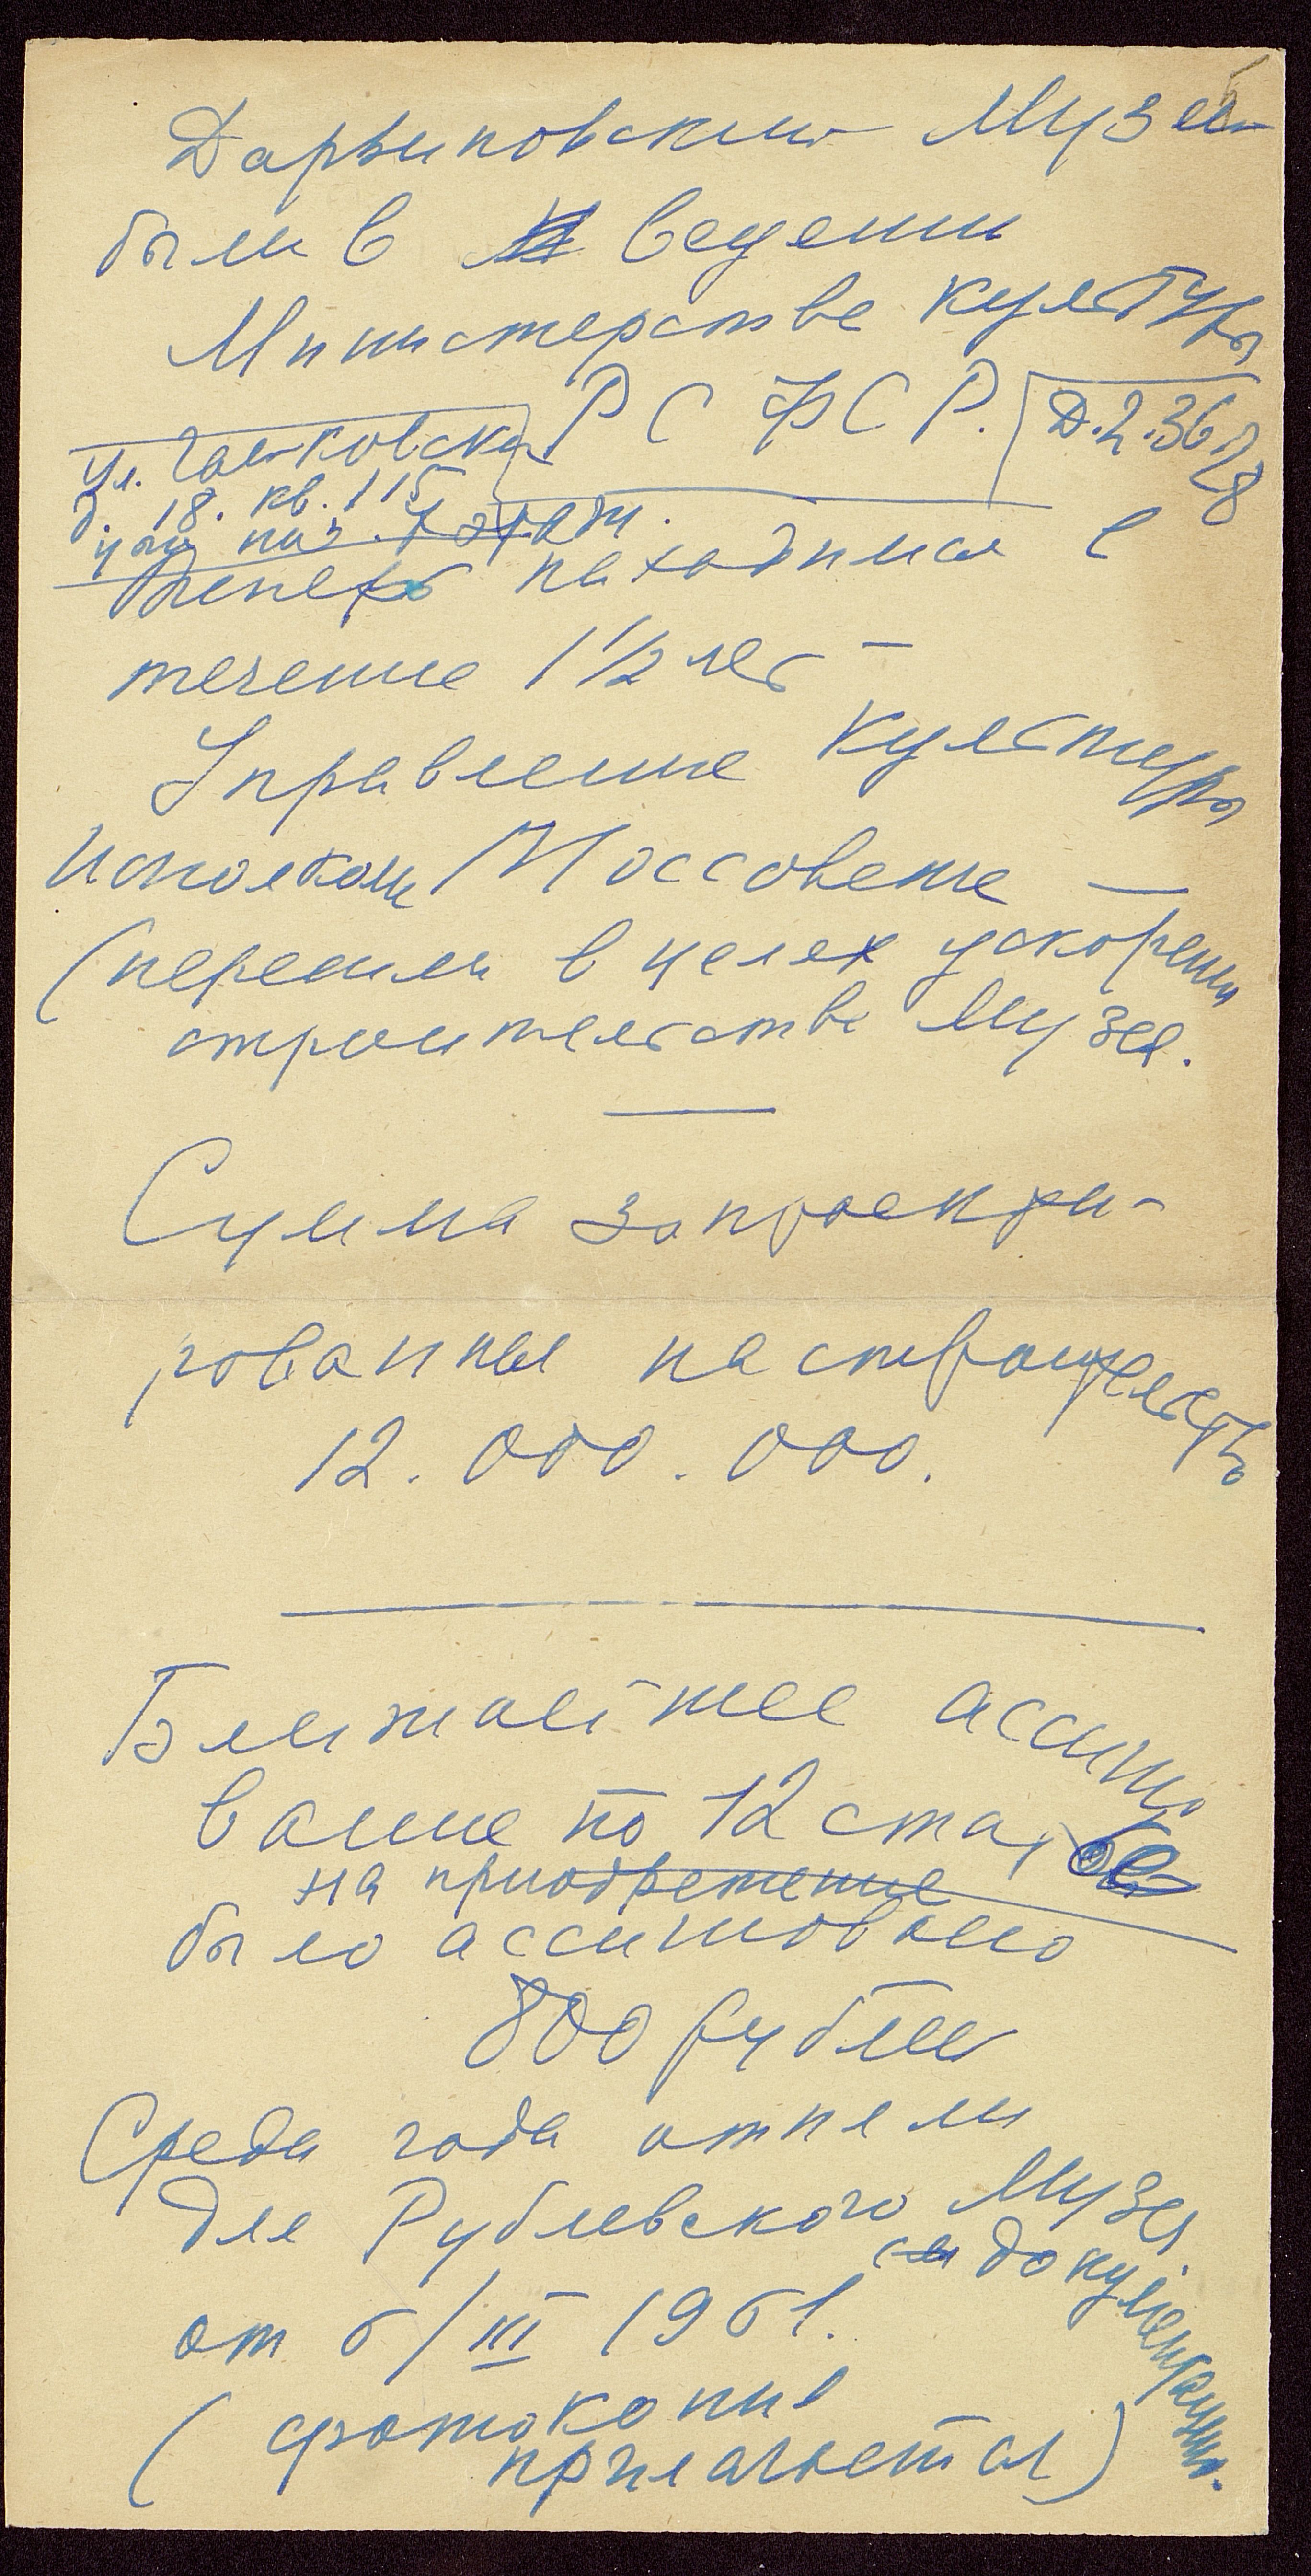 Дарвиновский Музей
были в ведении
Министерства культуры
РСФСР. Д.2.36.28
ул. Чайковск
д. 18. кв. 115
этаж.
теперь находимся в
течение 1½ лет —
Управление культуры
исполкома Моссовета —
(перешли в целях ускорения
строительства Музея.
Сумма запроекти-
рованная на строительство
12.000.000.
Ближайшее ассигно
вание по 12 стат
на приобретение
было ассигновано
800 рублей
Среди года отняли
для Рублевского Музея
см документацию.
от 6/III 1961.
(фотокопия
прилагается)